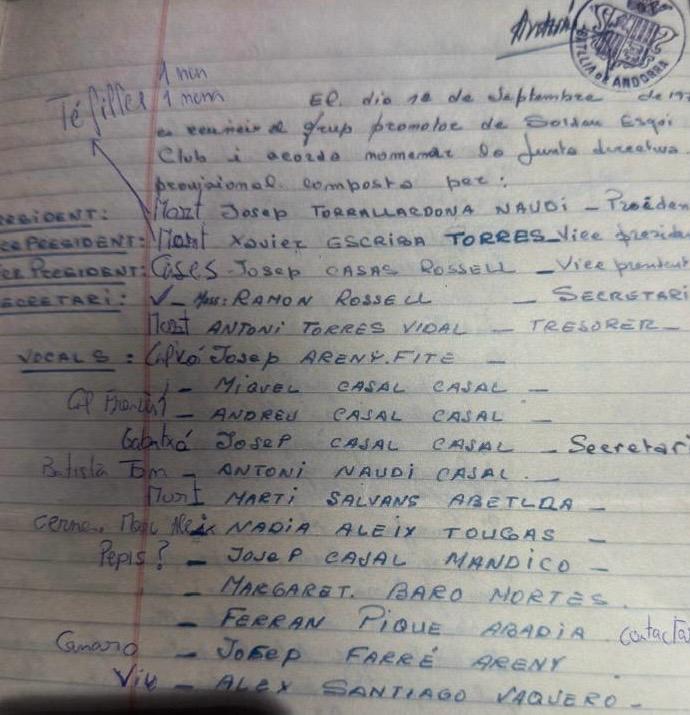 Té filles 1 nen
1 nom
BATLLIA DE ANDORRA
El dia 18 de Septembre de 197
es reuneix el grup promotor de Soldeu Esqui
Club i acorda nomenar la Junta directiva
provisional composta per:
RESIDENT: Mort Josep TORRALLARDONA NAUDI - Presiden
CEPRESIDENT: Mort Xavier ESCRIBA TORRES - Vice presiden
PRESIDENT: Cases - Josep CASAS ROSSELL - Vice president
SECRETARI: - Moss: RAMON ROSSELL - SECRETARI
Mort ANTONI TORRES VIDAL - TRESORER -
VOCALS: Calvó Josep ARENY.FITE -
- MIQUEL CASAL CASAL -
- ANDREU CASAL CASAL -
Gabatxó JOSEP CASAL CASAL - Secretari
Batista Tom - ANTONI NAUDI CASAL. -
Mort MARTI SALVANS ABETLLA -
NADIA ALEIX TOUGAS -
Pepis? - JOSEP CASAL MANDICO -
- MARGARET. BARO MORTES.
- FERRAN PIQUE ABADIA contactar
Canaro - JOSEP FARRÉ ARENY
Viu - ALEX SANTIAGO VAQUERO -